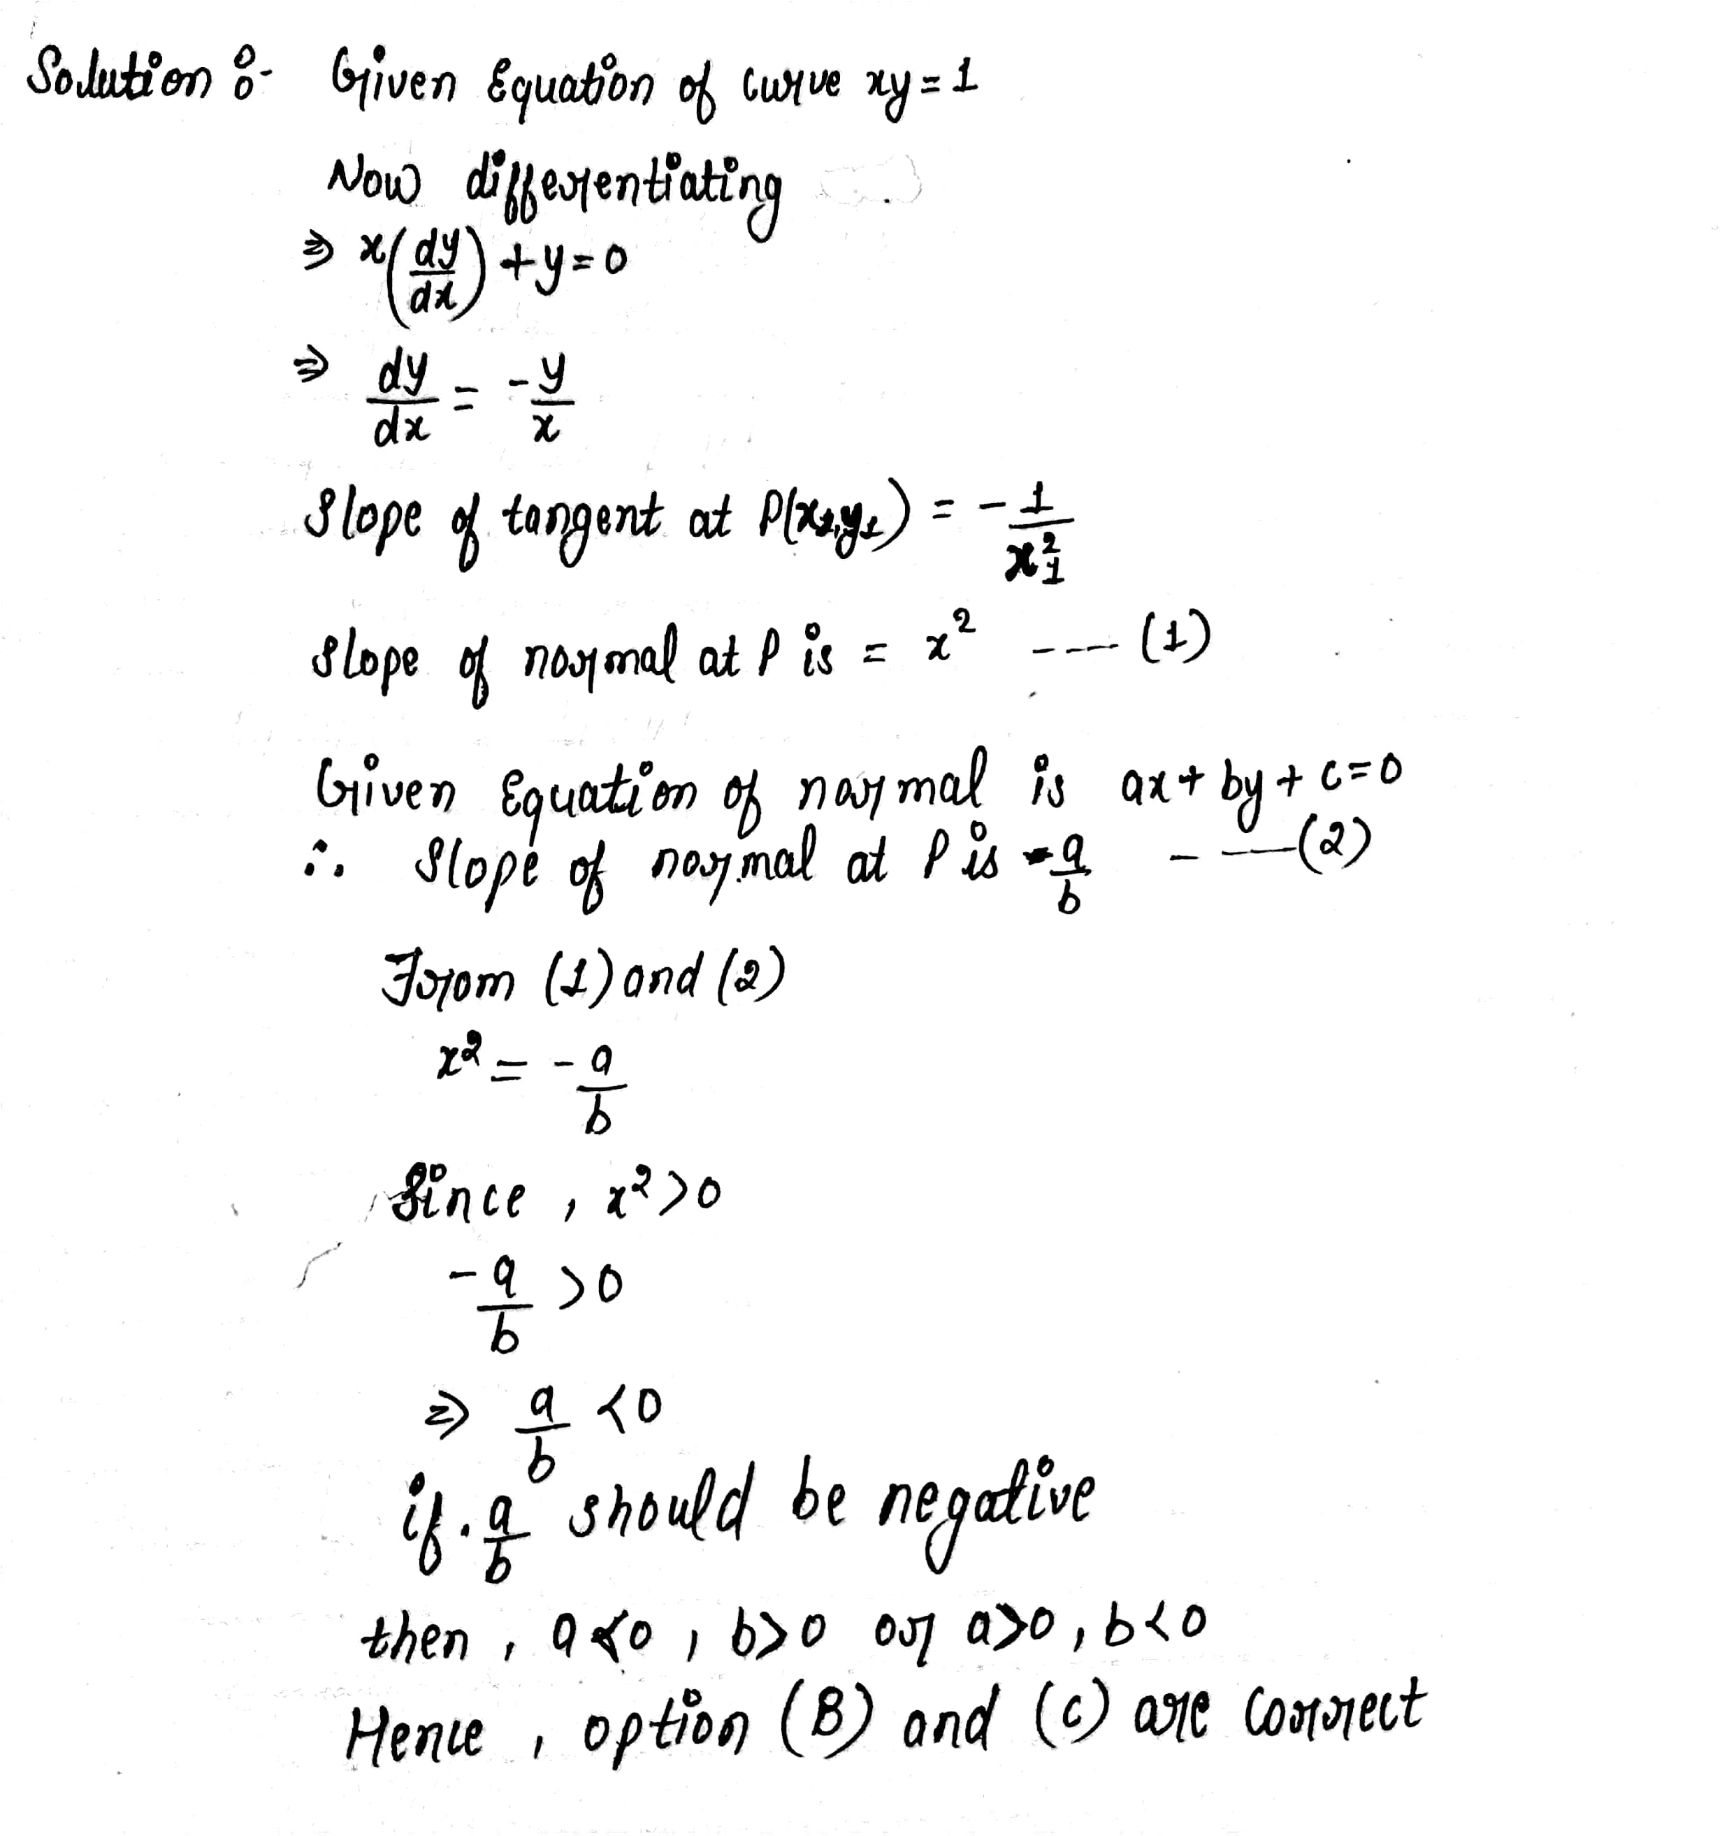 Solution :- Given Equation of curve xy = 1
Now differentiating
⇒ x(dy/dx) + y = 0
⇒ dy/dx = -y/x
Slope of tangent at P(x₁,y₁) = -1/x₁²
Slope of normal at P is = x² ---- (1)
Given Equation of normal is ax + by + c = 0
∴ Slope of normal at P is -a/b ----(2)
From (1) and (2)
x² = -a/b
Since , x² > 0
-a/b > 0
⇒ a/b < 0
if . a/b should be negative
then , a < 0 , b > 0 or a > 0 , b < 0
Hence , option (B) and (C) are correct